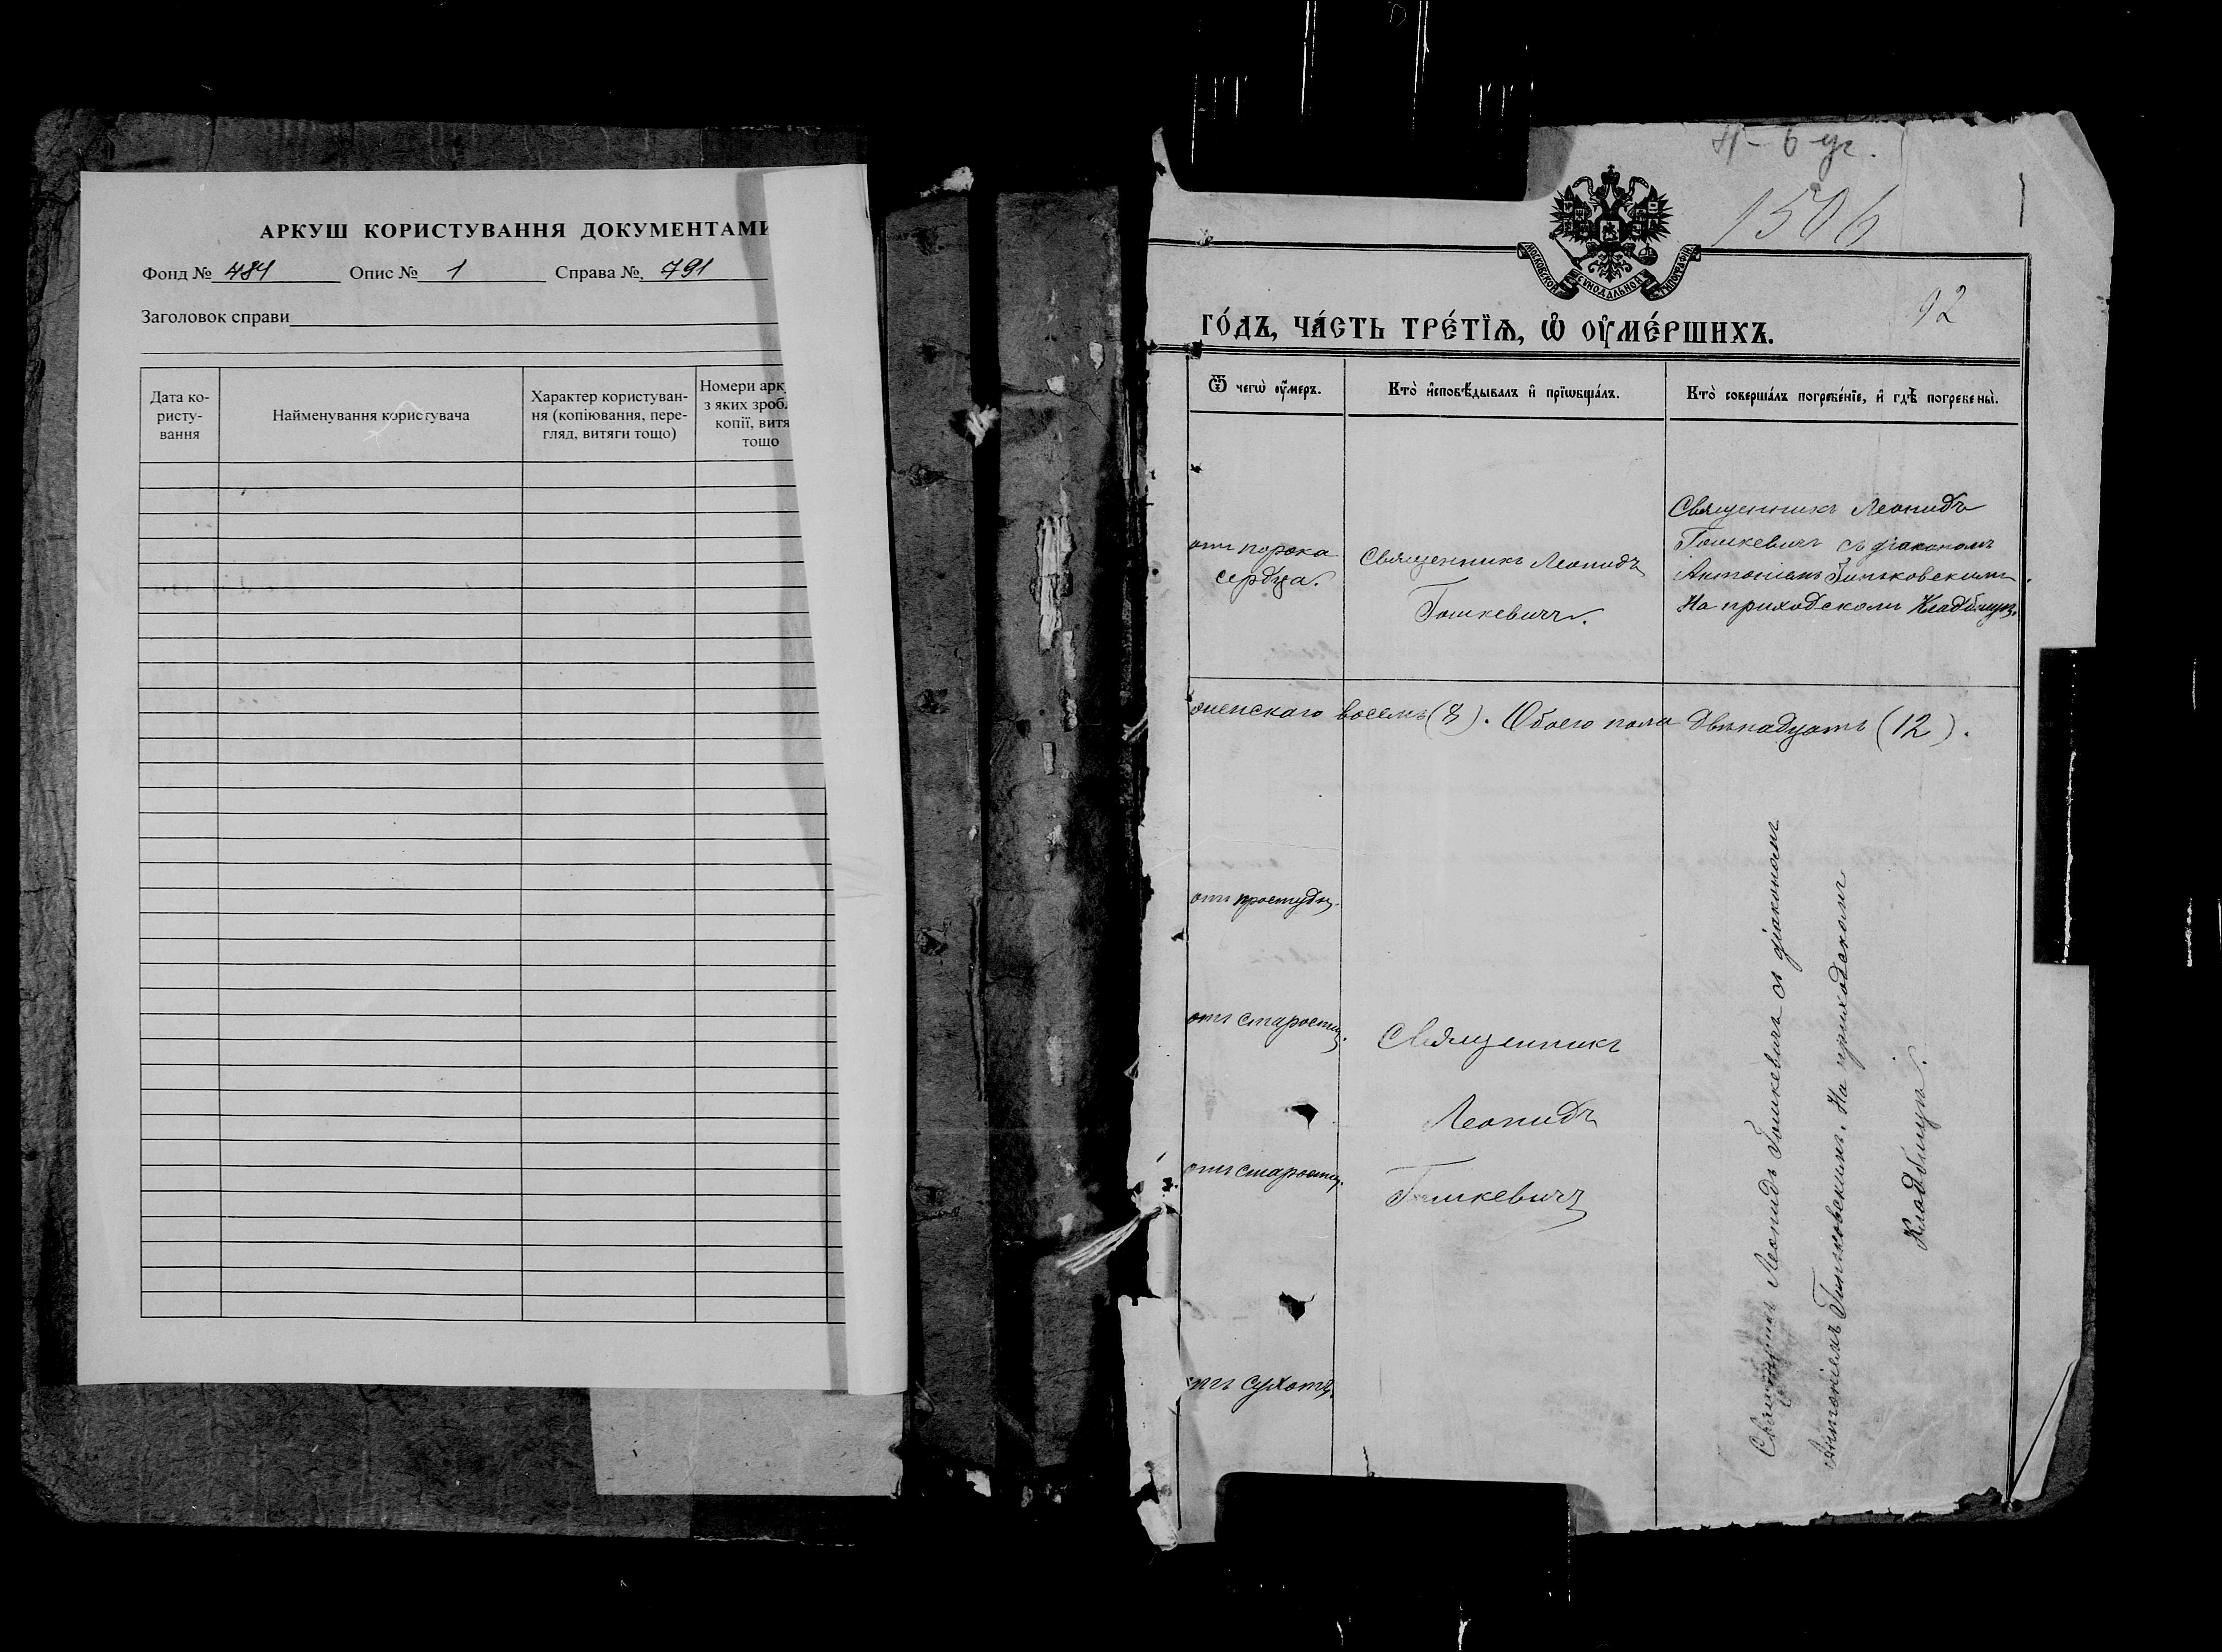 АРКУШ КОРИСТУВАННЯ ДОКУМЕНТАМИ
Фонд № 484 Опис № 1 Справа № 791
Заголовок справи
Дата ко-
ристу-
вання
Найменування користувача
Характер користуван-
ня (копіювання, пере-
гляд, витяги тощо)
Номери арк
з яких зроб
копії, витя
тощо
1506
МОСКОВСКОЙ СУНОДАЛЬНОЙ ТИПОГРАФІИ
92
го́дъ, ча́сть тре́тїѧ, ѡ҆ ᲂу҆ме́ршихъ.
Ѿ чегѡ̀ ᲂу҆́меръ.
Кто̀ и҆сповѣ́дывалъ и҆ прїѡбща́лъ.
Кто̀ соверша́лъ погребе́нїе, и҆ гдѣ̀ погребены̀.
отъ порока
сердца.
Священникъ Леонидъ
Гошкевичъ.
Священникъ Леонидъ
Гошкевичъ съ діакономъ
Антоніемъ Зиньковскимъ
На приходскомъ Кладбищѣ.
женскаго восемь (8). Обоего пола двѣнадцать (12).
отъ простуды.
отъ старости.
отъ старости.
отъ сухоты.
Священникъ
Леонидъ
Гошкевичъ
Священникъ Леонидъ Гошкевичъ съ діакономъ
Антоніемъ Зиньковскимъ. На приходскомъ
Кладбищѣ.